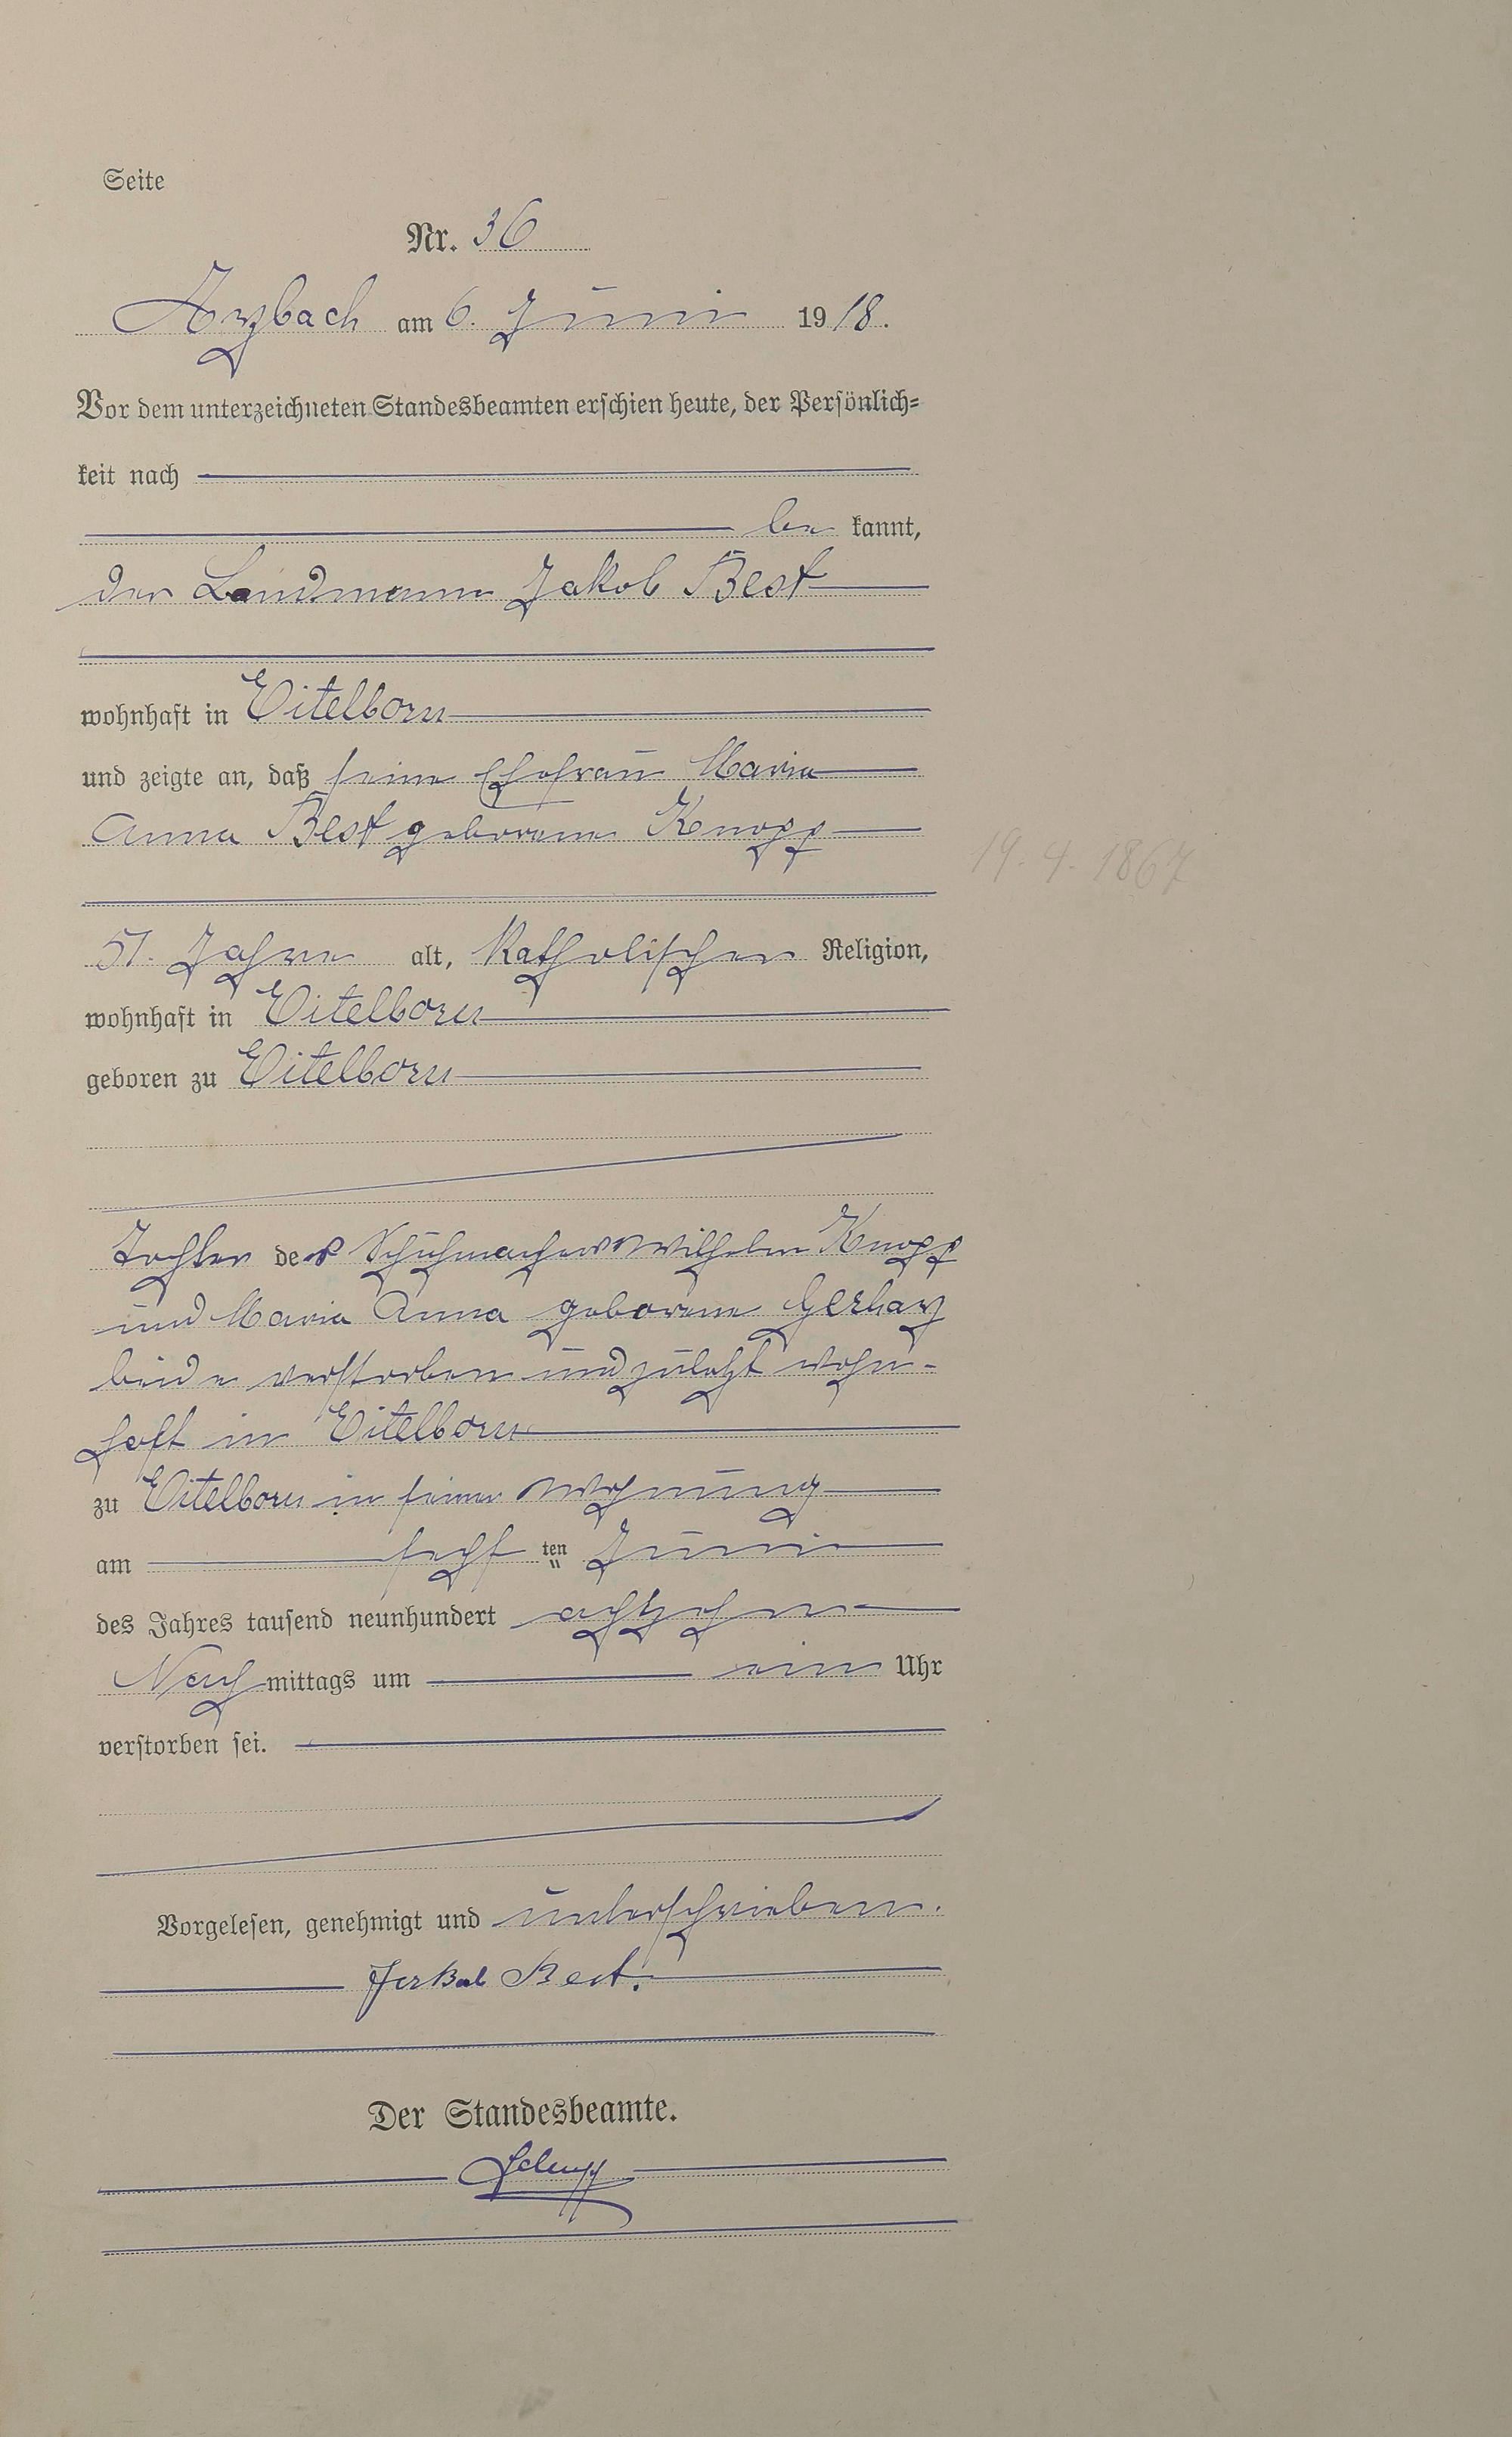 Seite
Nr. 36
Arzbach am 6. Juni 1918.
Vor dem unterzeichneten Standesbeamten erschien heute, der Persönlich-
keit nach
be kannt,
der Landmann Jakob Best
wohnhaft in Eitelborn
und zeigte an, daß seine Ehefrau Maria
Anna Best geborene Knopp
19.4.1867
51. Jahre alt, Katholischer Religion,
wohnhaft in Eitelborn
geboren zu Eitelborn
Tochter des Schuhmachers Wilhelm Knopp
und Maria Anna geborene Gerhaz
beide verstorben und zuletzt wohn-
haft in Eitelborn
zu Eitelborn in seiner Wohnung
am sechsten Juni
des Jahres tausend neunhundert achtzehn
Nachmittags um ein Uhr
verstorben sei.
Vorgelesen, genehmigt und unterschrieben.
Jakob Best.
Der Standesbeamte.